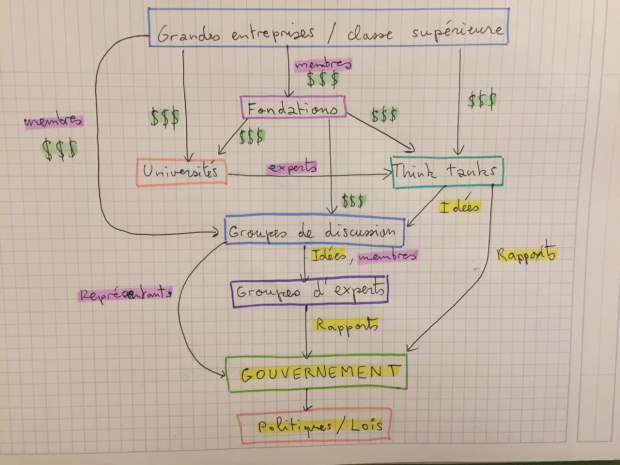 Grandes entreprises / classe supérieure
membres
$$$
membres
$$$
$$$
$$$
Fondations
$$$
$$$
Universités
experts
Think tanks
$$$
Idées
Groupes de discussion
Idées, membres
Rapports
Représentants
Groupes d'experts
Rapports
GOUVERNEMENT
Politiques / Lois